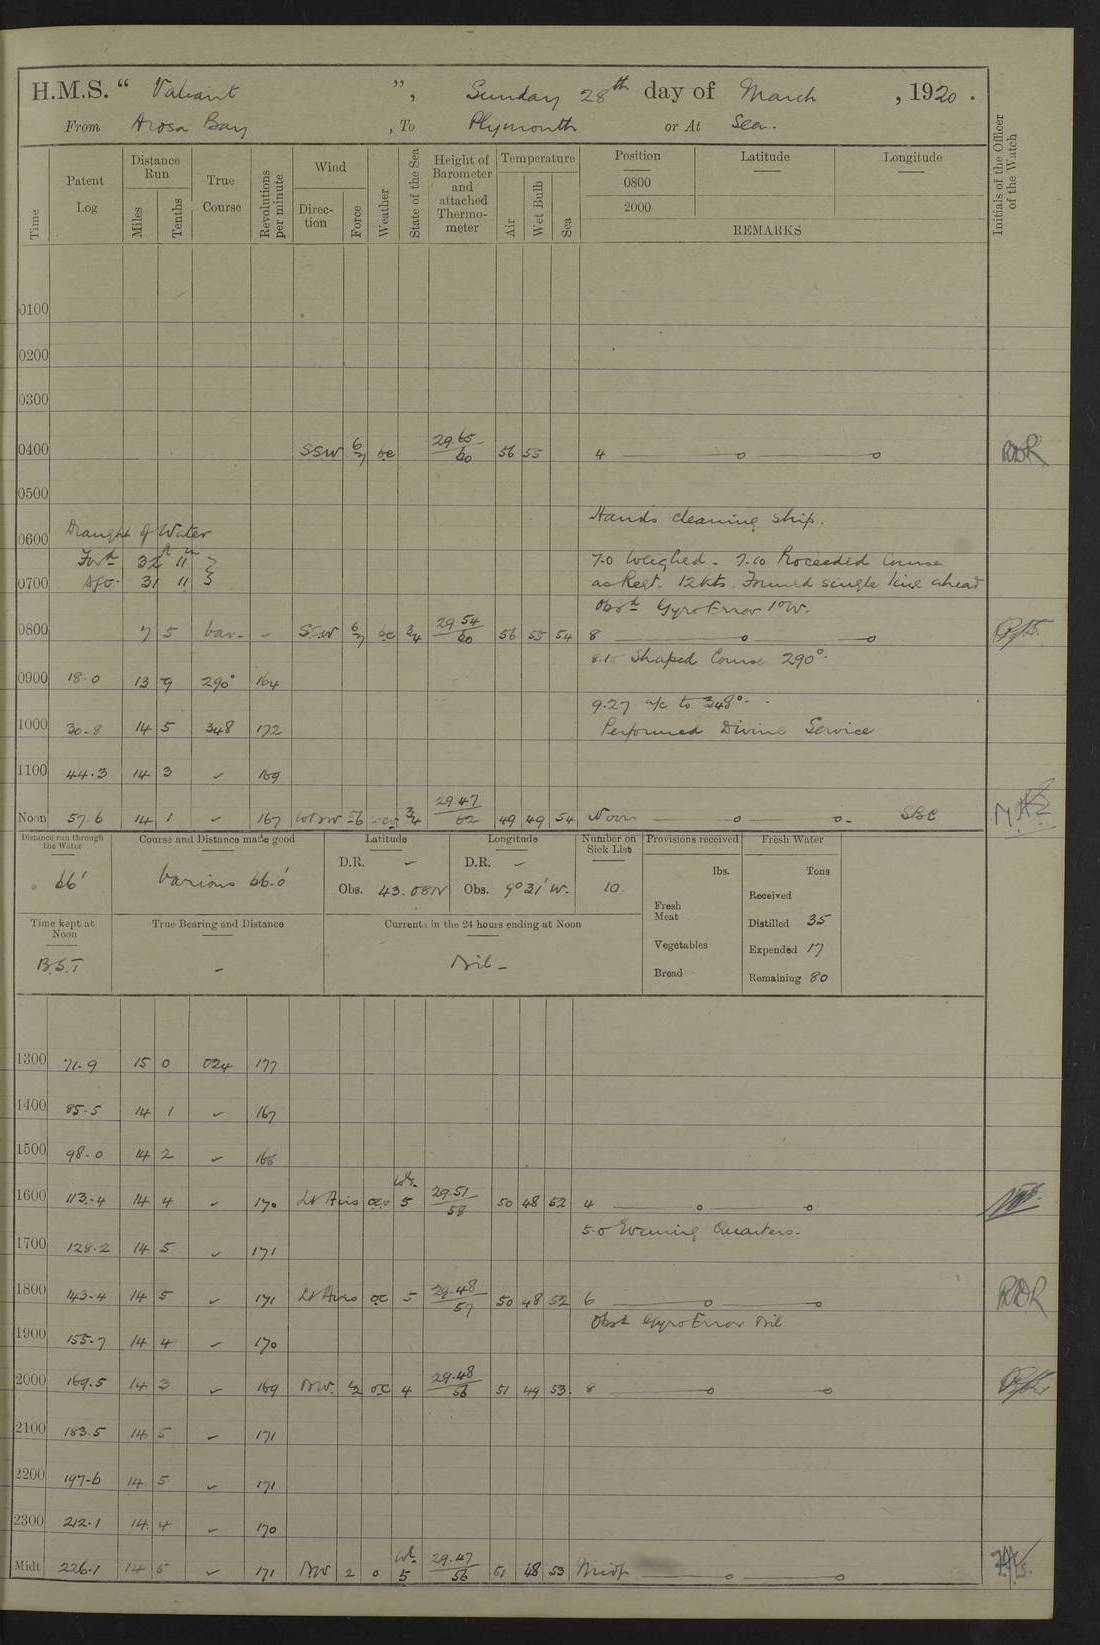 H.M.S. “ Valiant ”, Sunday 28th day of March, 1920.
From Arosa Bay, To Plymouth or At Sea.
Time
Patent Log
Distance Run
Miles
Tenths
True Course
Revolutions per minute
Wind
Direction
Force
Weather
State of the Sea
Height of Barometer and attached Thermometer
Temperature
Air
Wet Bulb
Sea
Position
0800
2000
Latitude
Longitude
REMARKS
Initials of the Officer of the Watch
0100
0200
0300
0400 SSW 6/7 bc 29.65/60 56 55 4 RDR
0500
Hands cleaning ship.
0600 Draught of Water
Ford 32 ft 11 in
7.0 Weighed. 7.10 Proceeded Course
0700 Aft. 31 11
as Reqt. 12 kts. Formed single line ahead
Obsd Gyro Error 1°W.
0800 7 5 Var. - SSW 6/7 bc 3/4 29.54/60 56 55 54 8
8.15 Shaped Course 290°.
0900 18.0 13 9 290° 164
9.27 a/c to 348°.
1000 30.8 14 5 348 172 Performed Divine Service
1100 44.3 14 3 ✓ 169
Noon 57.6 14 1 ✓ 167 WSW 3/4 29.47/62 49 49 54 Noon
Distance run through the Water
66'
Course and Distance made good
Various 66.0'
Latitude
D.R. -
Obs. 43.08N
Longitude
D.R. -
Obs. 9° 31' W.
Number on Sick List
10.
Provisions received
lbs.
Fresh Meat
Vegetables
Bread
Fresh Water
Tons
Received
Distilled 35
Expended 17
Remaining 80
Time kept at Noon
B.S.T
True Bearing and Distance
-
Currents in the 24 hours ending at Noon
Nil -
1300 71.9 15 0 024 177
1400 85.5 14 1 ✓ 167
1500 98.0 14 2 ✓ 168
1600 113.4 14 4 ✓ 170 Lt Airs 5 29.51/58 50 48 52 4
5.0 Evening Quarters.
1700 128.2 14 5 ✓ 171
1800 143.4 14 5 ✓ 171 Lt Airs oc 5 29.48/57 50 48 52 6 RDR
Obsd Gyro Error Nil
1900 155.7 14 4 ✓ 170
2000 169.5 14 3 ✓ 169 NW. 1/2 oc 4 29.48/56 51 49 53. 8
2100 183.5 14 5 ✓ 171
2200 197.6 14 5 ✓ 171
2300 212.1 14 4 ✓ 170
Midt 226.1 14 5 ✓ 171 NW 2 o 5 29.47/56 51 48 53 Midt